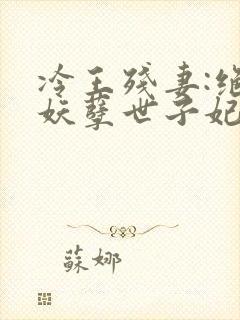 冷王残妻:绝
妖孽世子妃
蘇娜